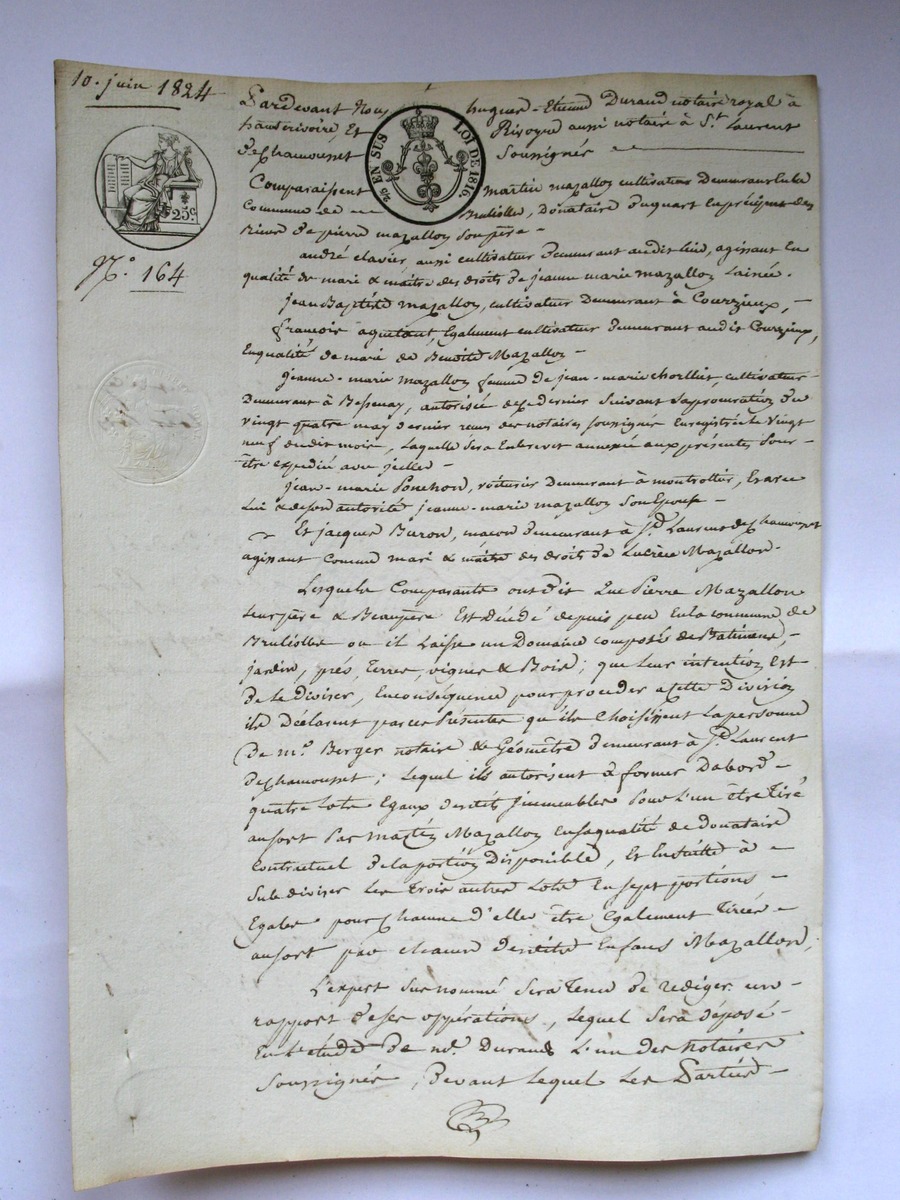 10. juin 1824
Pardevant Nous hugues-Etienne Durand notaire royal à
hauterivoire, Et Rivoyre aussi notaire à St. Laurent
de Chamousset Soussignés
25 EN SUS LOI DE 1816.
25c.
N.° 164
Comparaissent martin mazallon cultivateur Demeurant En la
Commune de Brullolle, Donataire du quart En préciput des
Biens de pierre mazallon Son père -
andré clavier, aussi cultivateur Demeurant audit lieu, agissant En
qualité de mari & maître des droits de jeanne marie mazallon L'ainée.
jean Baptiste Mazallon, cultivateur Demeurant à Courzieux, -
françois également cultivateur demeurant audit Courzieux,
En qualité de mari de Benoite Mazallon -
jeanne-marie mazallon femme de jean-marie chorllier, cultivateur
Demeurant à Bessenay, autorisée de ce dernier suivant Sa procuration du
vingt quatre may dernier reçue des notaires soussignés Enregistrée le vingt
neuf dudit mois, Laquelle Sera En brevet annexée aux présentes Pour
être expediée avec jcelles -
jean-marie Ponchon, voiturier Demeurant à montrottier, Et avec
Lui & de son autorité jeanne-marie mazallon Son Epouse -
Et jacques Buron, maçon demeurant à St. Laurent de Chamousset
agissant Comme mari & maître des droits de Lucrèce Mazallon.
Lesquels Comparants ont dit Que Pierre Mazallon
Leur père & Beaupère Est Décédé depuis peu En la commune de
Brullolle ou il Laisse un Domaine composé de Batimens, -
jardin, prés, Terres, vignes & Bois; que Leur intention Est
de Le diviser, En conséquence pour proceder a Cette Division
ils Déclarent par ces Présentes qu'ils Choisissent La personne
de me. Berger notaire & Géomètre demeurant à St. Laurent
de Chamousset; Lequel ils autorisent à former Dabord -
quatre Lots Egaux desdits Jmmeubles Pour L'un être Tiré
au sort Par Martin Mazallon En sa qualité de donataire
Contractuel de la portion Disponible, Et Ensuitte à -
Subdiviser Les Trois autres Lots En sept portions -
Egales pour Chacune d'elles être Egalement Tirées -
au sort par chacun desdits Enfans Mazallon;
L'expert Sus nommé Sera Tenu de rediger un -
rapport de ses oppérations, Lequel Sera déposé -
En L'étude de Me. Durand L'un des Notaires
Soussignés, Devant Lequel Les Parties -